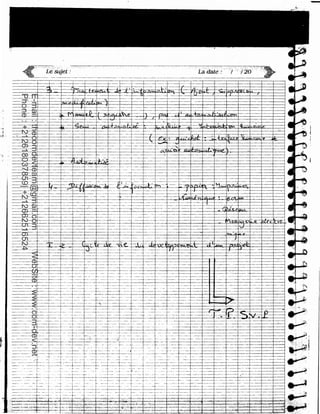 Le sujet :
La date : / / 20
3 - Traitement de l'information ( Ajout, suppression,
modification )
* Manuel ( registre ...), pas d'automatisation
* Semi - automatisé : machine + intervention humaine
( Ex : guichet : interface humaine et
automatique).
* Automatisé
4 - Diffusion de l'information : - papier : Imprimer
- Numérique : écran
- Réseau
- Messagerie électro-
nique
I - 2 - Cycle de vie du développement d'un projet
T.P. S.v.P
E-mail : thecomdevteam@gmail.com
Phone : +212618037859|+212662516524
WebSite : www.com-dev.net